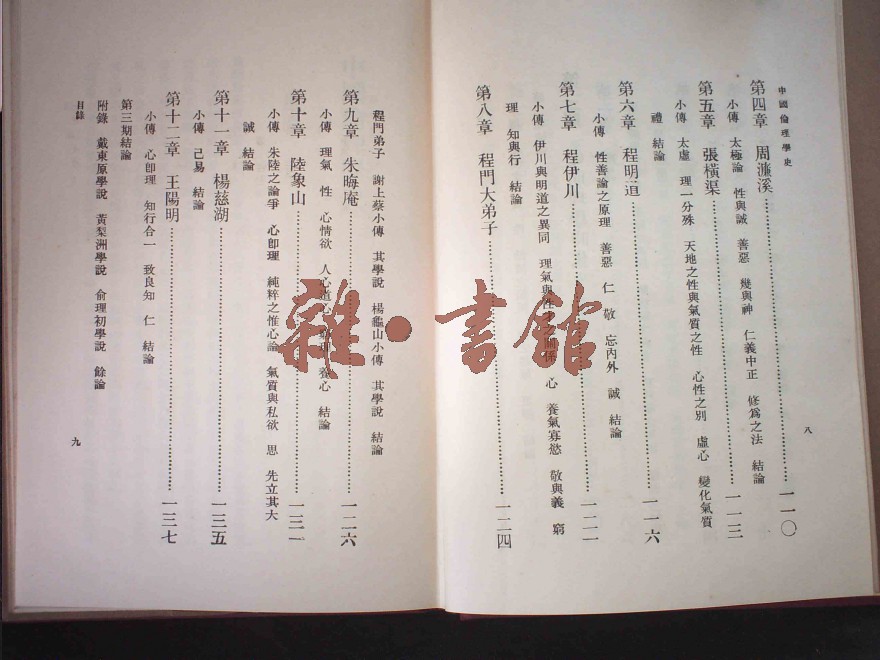 中國倫理學史
第四章 周濂溪……一一〇
小傳 太極論 性與誠 善惡 幾與神 仁義中正 修爲之法 結論
第五章 張橫渠……一一三
小傳 太虛 理一分殊 天地之性與氣質之性 心性之別 虛心 變化氣質
禮 結論
第六章 程明道……一一六
小傳 性善論之原理 善惡 仁 敬 忘內外 誠 結論
第七章 程伊川……一二一
小傳 伊川與明道之異同 理氣與性之關係 心 養氣寡慾 敬與義 窮
理 知與行 結論
第八章 程門大弟子……一二四
八
程門弟子 謝上蔡小傳 其學說 楊龜山小傳 其學說 結論
第九章 朱晦庵……一二六
小傳 理氣 性 心情欲 人心道心 養心 結論
第十章 陸象山……一三一
小傳 朱陸之論爭 心卽理 純粹之惟心論 氣質與私欲 思 先立其大
誠 結論
第十一章 楊慈湖……一三五
小傳 己易 結論
第十二章 王陽明……一三七
小傳 心卽理 知行合一 致良知 仁 結論
第三期結論
附錄 戴東原學說 黃梨洲學說 俞理初學說 餘論
目錄
九
雜·書館